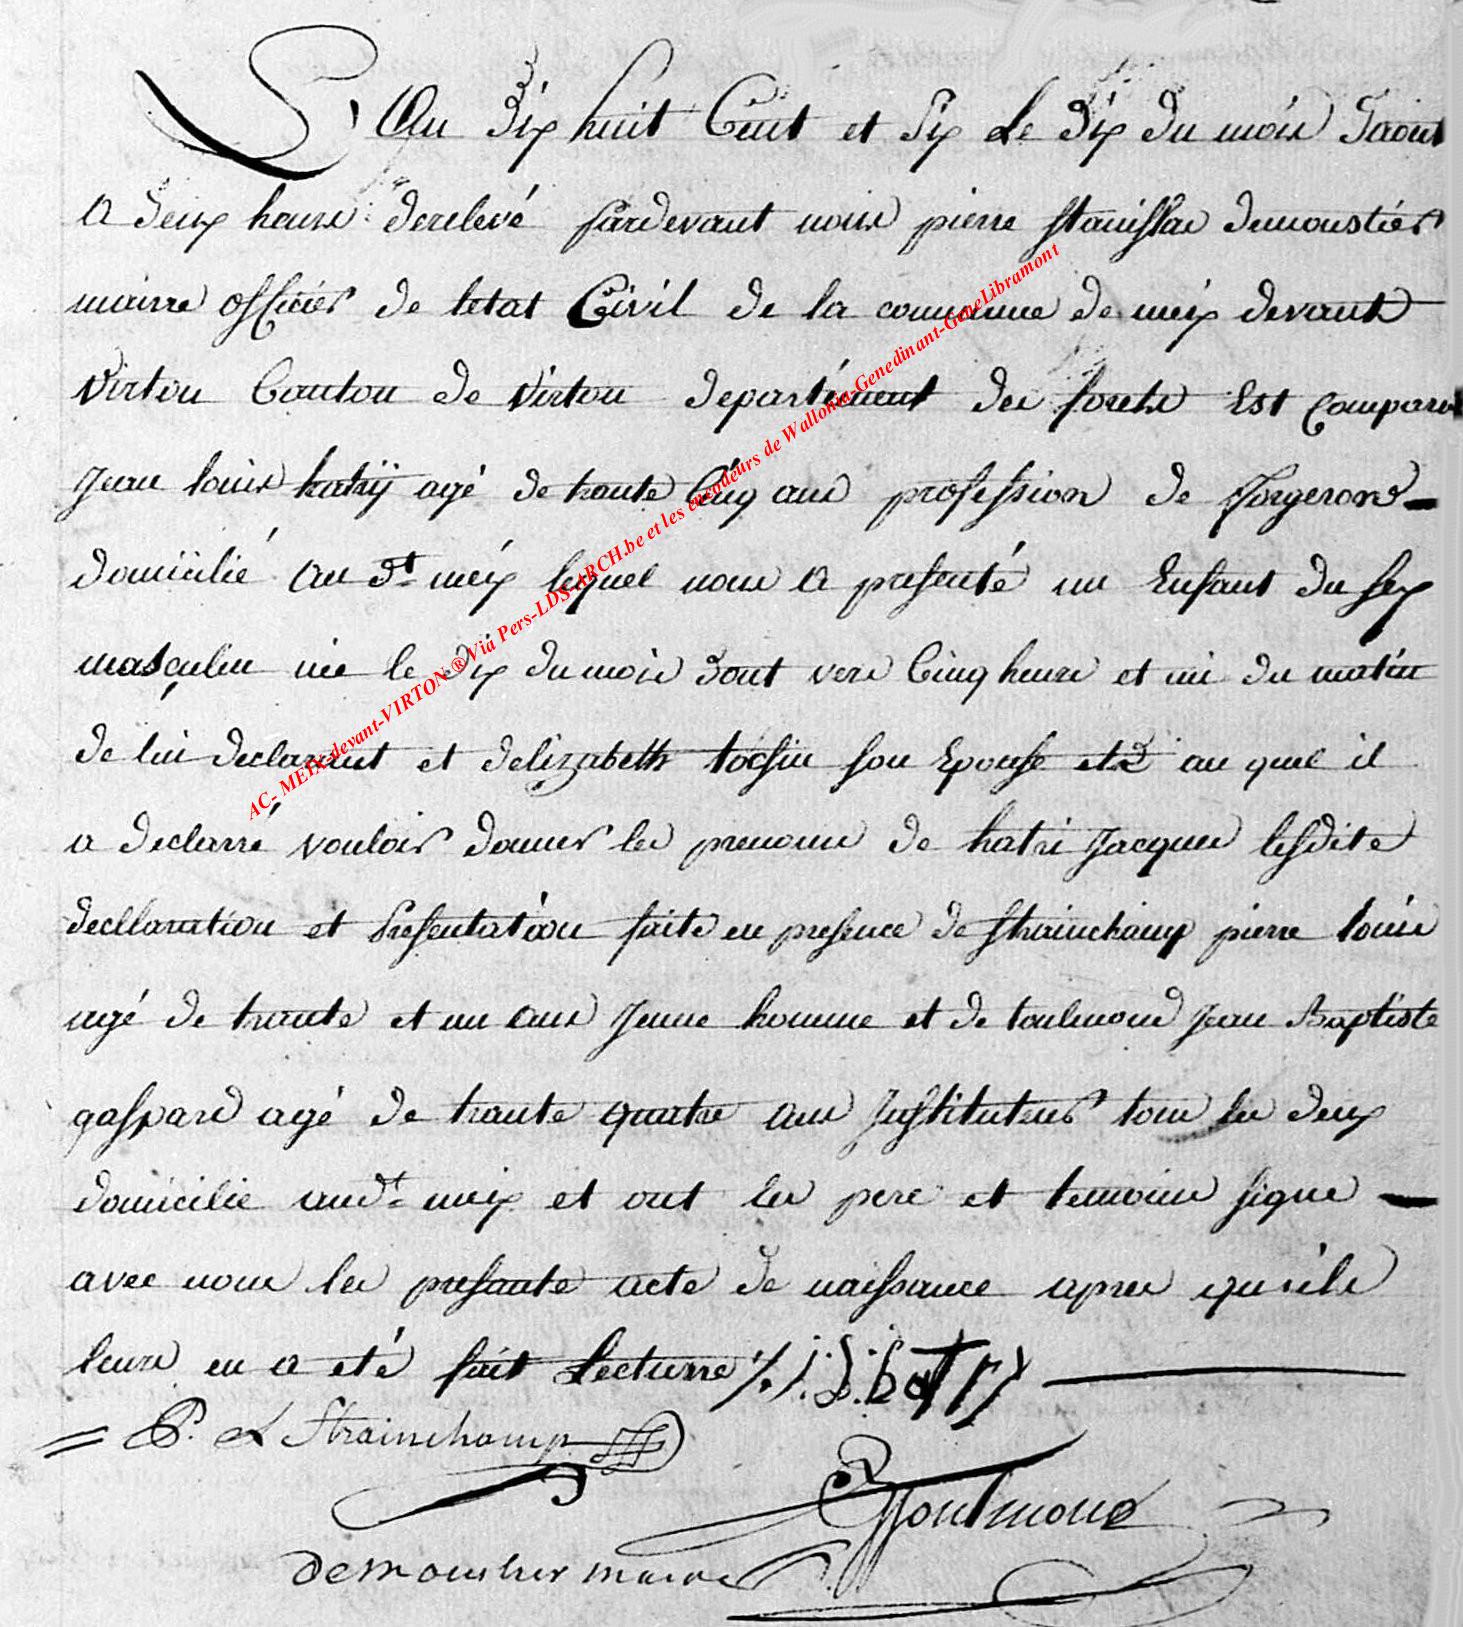 L'An Dix huit Cent et Six Le Dix du mois Daout
a deux heures derelevé pardevant nous pierre stanislas demoustier
mairre officier de letat Civil de la commune de meix devant
Virton Canton de Virton departement des forets Est Comparu
Jean louis hatrÿ agé de trante Cinq ans profession de Forgerons
domicilié au dt meix lequel nous a presenté un Enfant du sex
masculin née le dix du mois dout vers Cinq heures et mi du matin
de lui declarant et delizabeth tocsin son Epouse et auquel il
a declarré vouloir donner les prenoms de hatri Jacques lesdite
decllaration et Presentation faite en presence de strainchamp pierre louis
agé de trante et un ans Jeune homme et de toulmond Jean Baptiste
gaspard agé de trante quatre ans Instituteur tous les deux
domicilie audt meix et ont les pere et temoins signe
avec nous les presante acte de naissance apres quils
leurs en a eté fait Lecturre ·/. j: L: hatry
P. L Strainchamp
Toulmond
demoustier maire
AC- MEIX-devant-VIRTON ® Via Pers-LDS-ARCH.be et les encodeurs de Wallonia-Genedinant-GeneLibramont